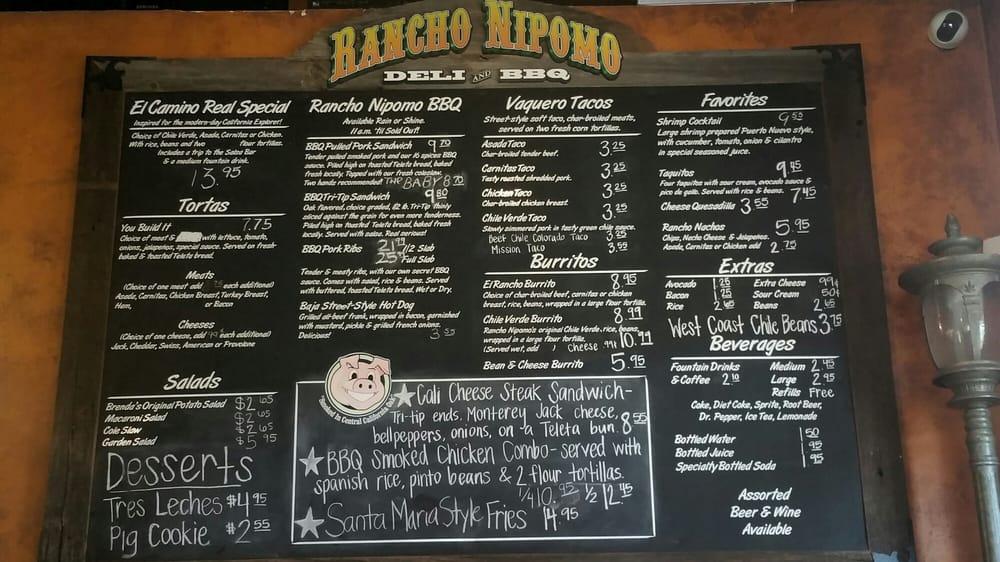 RANCHO NIPOMO
DELI AND BBQ
El Camino Real Special
Inspired for the modern-day California Explorer!
Choice of Chile Verde, Asada, Carnitas or Chicken.
With rice, beans and two flour tortillas.
Includes a trip to the Salsa Bar
& a medium fountain drink.
13.95
Tortas
You Build It 7.75
Choice of meat & with lettuce, tomato,
onions, jalapenos, special sauce. Served on fresh-
baked & toasted Teleta bread.
Meats
(Choice of one meat add each additional)
Asada, Carnitas, Chicken Breast, Turkey Breast,
Ham, or Bacon
Cheeses
(Choice of one cheese, add each additional)
Jack, Cheddar, Swiss, American or Provolone
Salads
Brenda's Original Potato Salad $2.65
Macaroni Salad $2.65
Cole Slaw $2.65
Garden Salad $5.95
Desserts
Tres Leches $4.95
Pig Cookie $2.55
Rancho Nipomo BBQ
Available Rain or Shine.
11 a.m. 'til Sold Out!
BBQ Pulled Pork Sandwich 9.70
Tender pulled smoked pork and our 16 spices BBQ
sauce. Piled high on toasted Teleta bread, baked
fresh locally. Topped with our fresh coleslaw.
Two hands recommended! THE BABY 8.70
BBQ Tri-Tip Sandwich 9.80
Oak flavored, choice graded, Tri-Tip thinly
sliced against the grain for even more tenderness.
Piled high on toasted Teleta bread, baked fresh
locally. Served with salsa. Real serious!
BBQ Pork Ribs 21.99 1/2 Slab
25.99 Full Slab
Tender & meaty ribs, with our own secret BBQ
sauce. Comes with salad, rice & beans. Served
with buttered, toasted Teleta bread, Wet or Dry.
Baja Street-Style Hot Dog
Grilled all-beef frank, wrapped in bacon, garnished
with mustard, pickle & grilled french onions.
Delicious! 3.55
Vaquero Tacos
Street-style soft taco, char-broiled meats,
served on two fresh corn tortillas.
Asada Taco 3.25
Char-broiled tender beef.
Carnitas Taco 3.25
Tasty roasted shredded pork.
Chicken Taco 3.25
Char-broiled chicken breast.
Chile Verde Taco 3.25
Slowly simmered pork in tasty green chile sauce.
Beef Chile Colorado Taco 3.25
Mission Taco 3.59
Burritos
El Rancho Burrito 8.95
Choice of char-broiled beef, carnitas or chicken
breast, rice, beans, wrapped in a large flour tortilla.
Chile Verde Burrito 8.99
Rancho Nipomo's original Chile Verde, rice, beans,
wrapped in a large flour tortilla. 10.99
(Served wet, add 1 Cheese .99)
Bean & Cheese Burrito 5.95
Smoked In Central California
Cali Cheese Steak Sandwich-
Tri-tip ends, Monterey Jack cheese,
bellpeppers, onions, on a Teleta bun. 8.55
BBQ Smoked Chicken Combo- served with
spanish rice, pinto beans & 2 flour tortillas.
1/4 10.95 1/2 12.45
Santa Maria Style Fries 14.95
Favorites
Shrimp Cocktail 9.55
Large shrimp prepared Puerto Nuevo style,
with cucumber, tomato, onion & cilantro
in special seasoned juice.
Taquitos 9.45
Four taquitos with sour cream, avocado sauce &
pico de gallo. Served with rice & beans. 7.45
Cheese Quesadilla 3.55
Rancho Nachos 5.95
Chips, Nacho Cheese & Jalapeños.
Asada, Carnitas or Chicken add 2.75
Extras
Avocado 1.25 Extra Cheese 99¢
Bacon 1.25 Sour Cream 50¢
Rice 2.45 Beans 2.45
West Coast Chile Beans 3.75
Beverages
Fountain Drinks Medium 2.45
& Coffee 2.10 Large 2.95
Refills Free
Coke, Diet Coke, Sprite, Root Beer,
Dr. Pepper, Ice Tea, Lemonade
Bottled Water 1.50
Bottled Juice
Specialty Bottled Soda
Assorted
Beer & Wine
Available